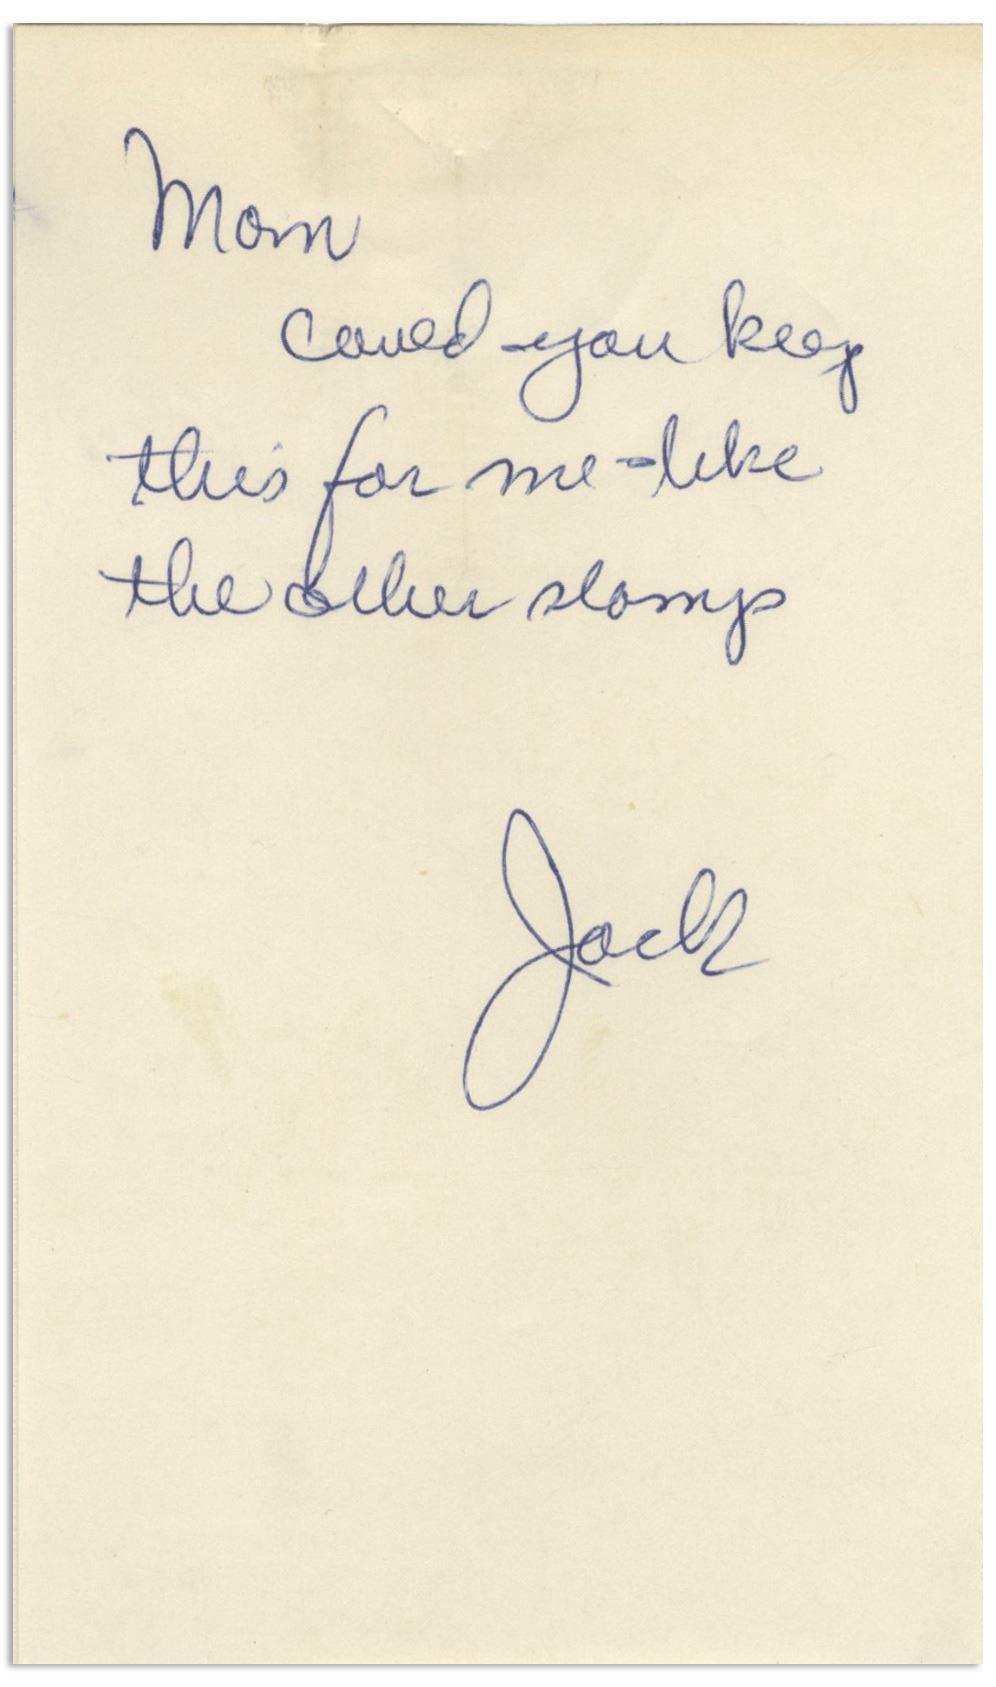 Mom
could you keep
this for me - like
the other stamps
Jack